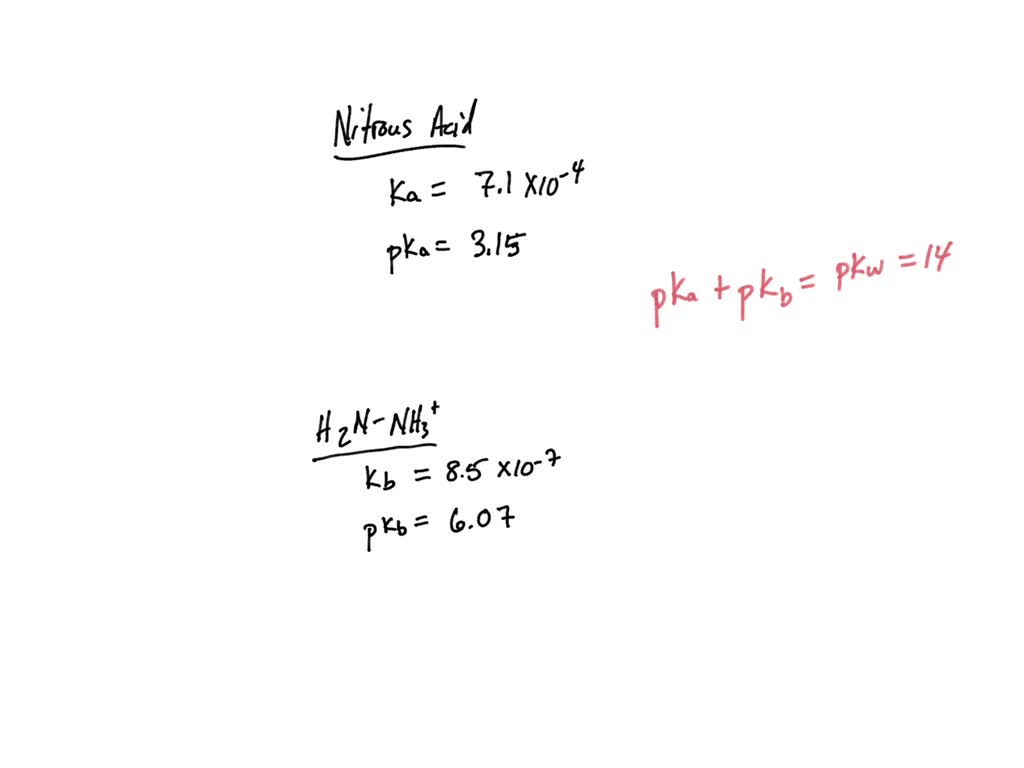 Nitrous Acid
Ka = 7.1 x10⁻⁴
pKa = 3.15
pKa + pKb = pKw = 14
H₂N-NH₃⁺
Kb = 8.5 x10⁻⁷
pKb = 6.07